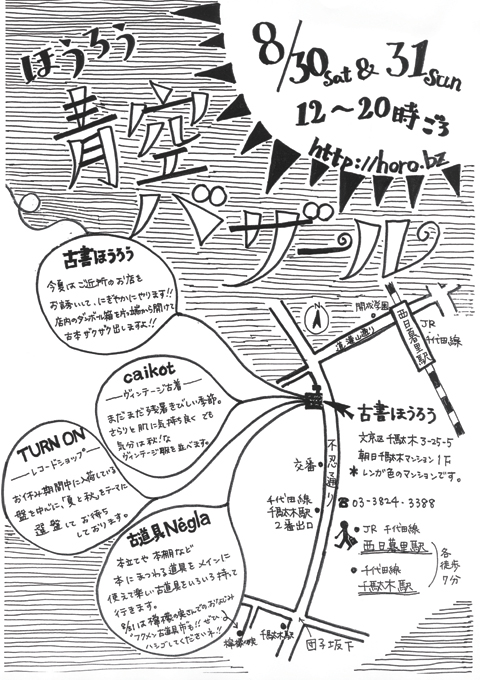 8/30sat & 31sun
12〜20時ごろ
http://horo.bz
ほうろう
青空
バザール
古書ほうろう
今夏はご近所のお店も
お誘いして、にぎやかにやります!!
店内のダンボール箱を片っ端から開けて
古本ザクザク出しますよ!!
caikot
ヴィンテージ古着
まだまだ残暑きびしい季節。
さらりと肌に気持ち良く でも
気分は秋!な
ヴィンテージ服を並べます。
TURN ON
レコードショップ
お休み期間中に入荷している
盤を中心に、「夏と秋」をテーマに
選盤してお待ち
しております。
古道具Négla
本立てや 本棚など
本にまつわる道具をメインに
使えて楽しい古道具をいろいろ持って
行きます。
8/31は檸檬の実さんでのおなじみ
ワクメン古道具市も!!ぜひ
ハシゴしてくださいネ!!
N
開成学園
道灌山通り
西日暮里駅
JR
千代田線
古書ほうろう
文京区千駄木3-25-5
朝日千駄木マンション1F
* レンガ色のマンションです。
☎03-3824-3388
不忍通り
交番
千代田線
千駄木駅
2番出口
JR 千代田線
西日暮里駅
千代田線
千駄木駅
各
徒歩
7分
檸檬の実
千駄木駅
団子坂下